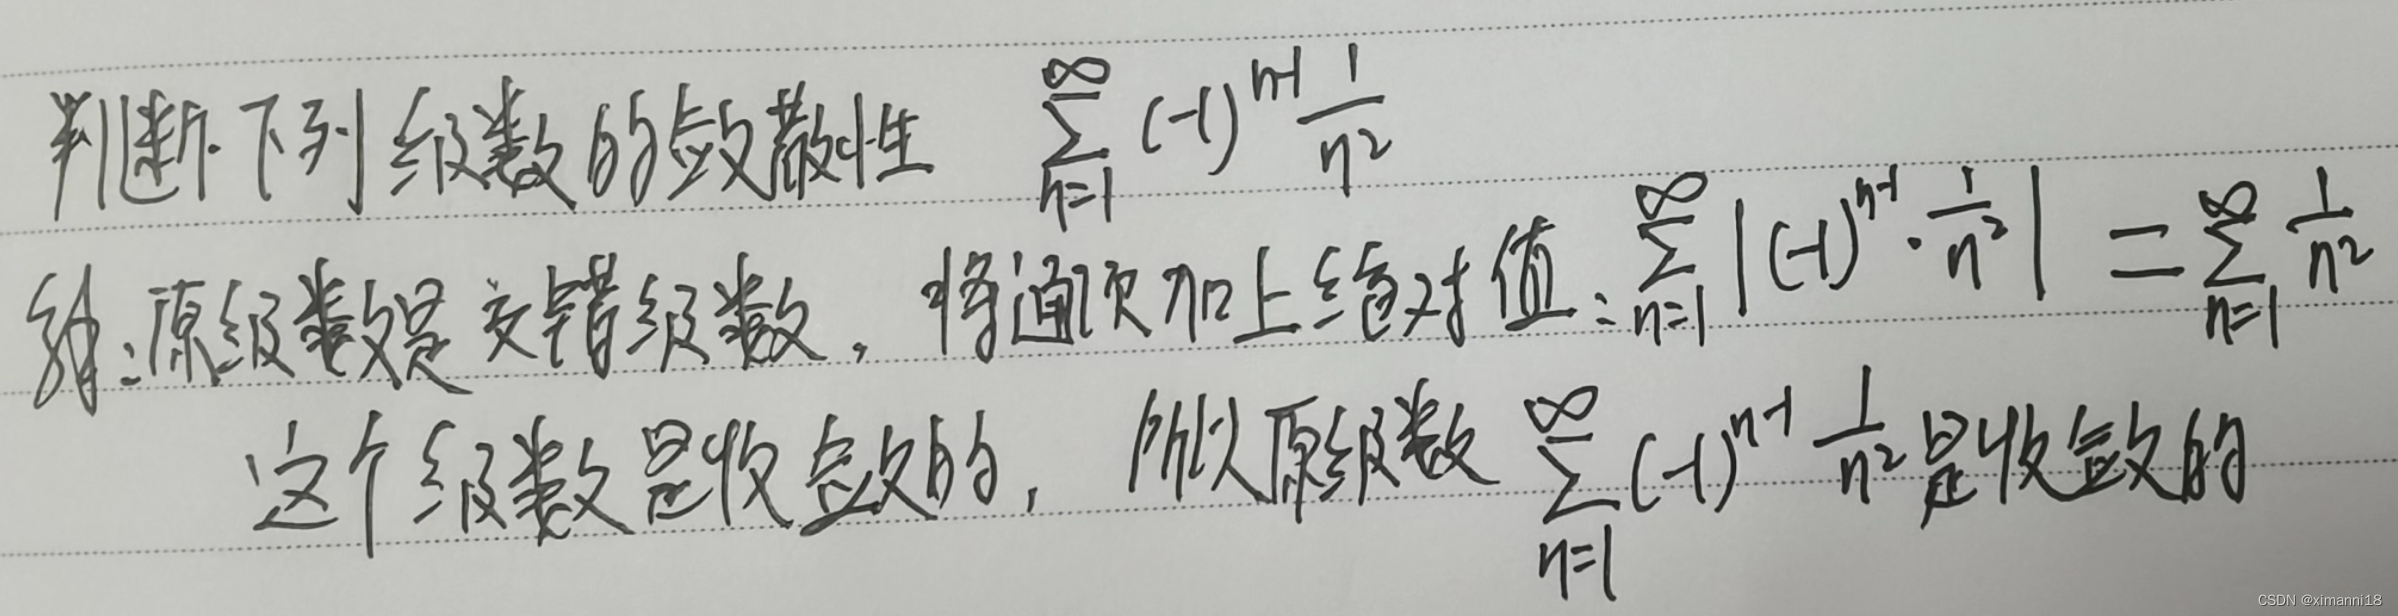 判断下列级数的敛散性 $\sum_{n=1}^{\infty} (-1)^{n-1} \frac{1}{n^2}$
解:原级数是交错级数,将通项加上绝对值:$\sum_{n=1}^{\infty} \left| (-1)^{n-1} \cdot \frac{1}{n^2} \right| = \sum_{n=1}^{\infty} \frac{1}{n^2}$
这个级数是收敛的,所以原级数 $\sum_{n=1}^{\infty} (-1)^{n-1} \frac{1}{n^2}$ 是收敛的
CSDN @ximanni18